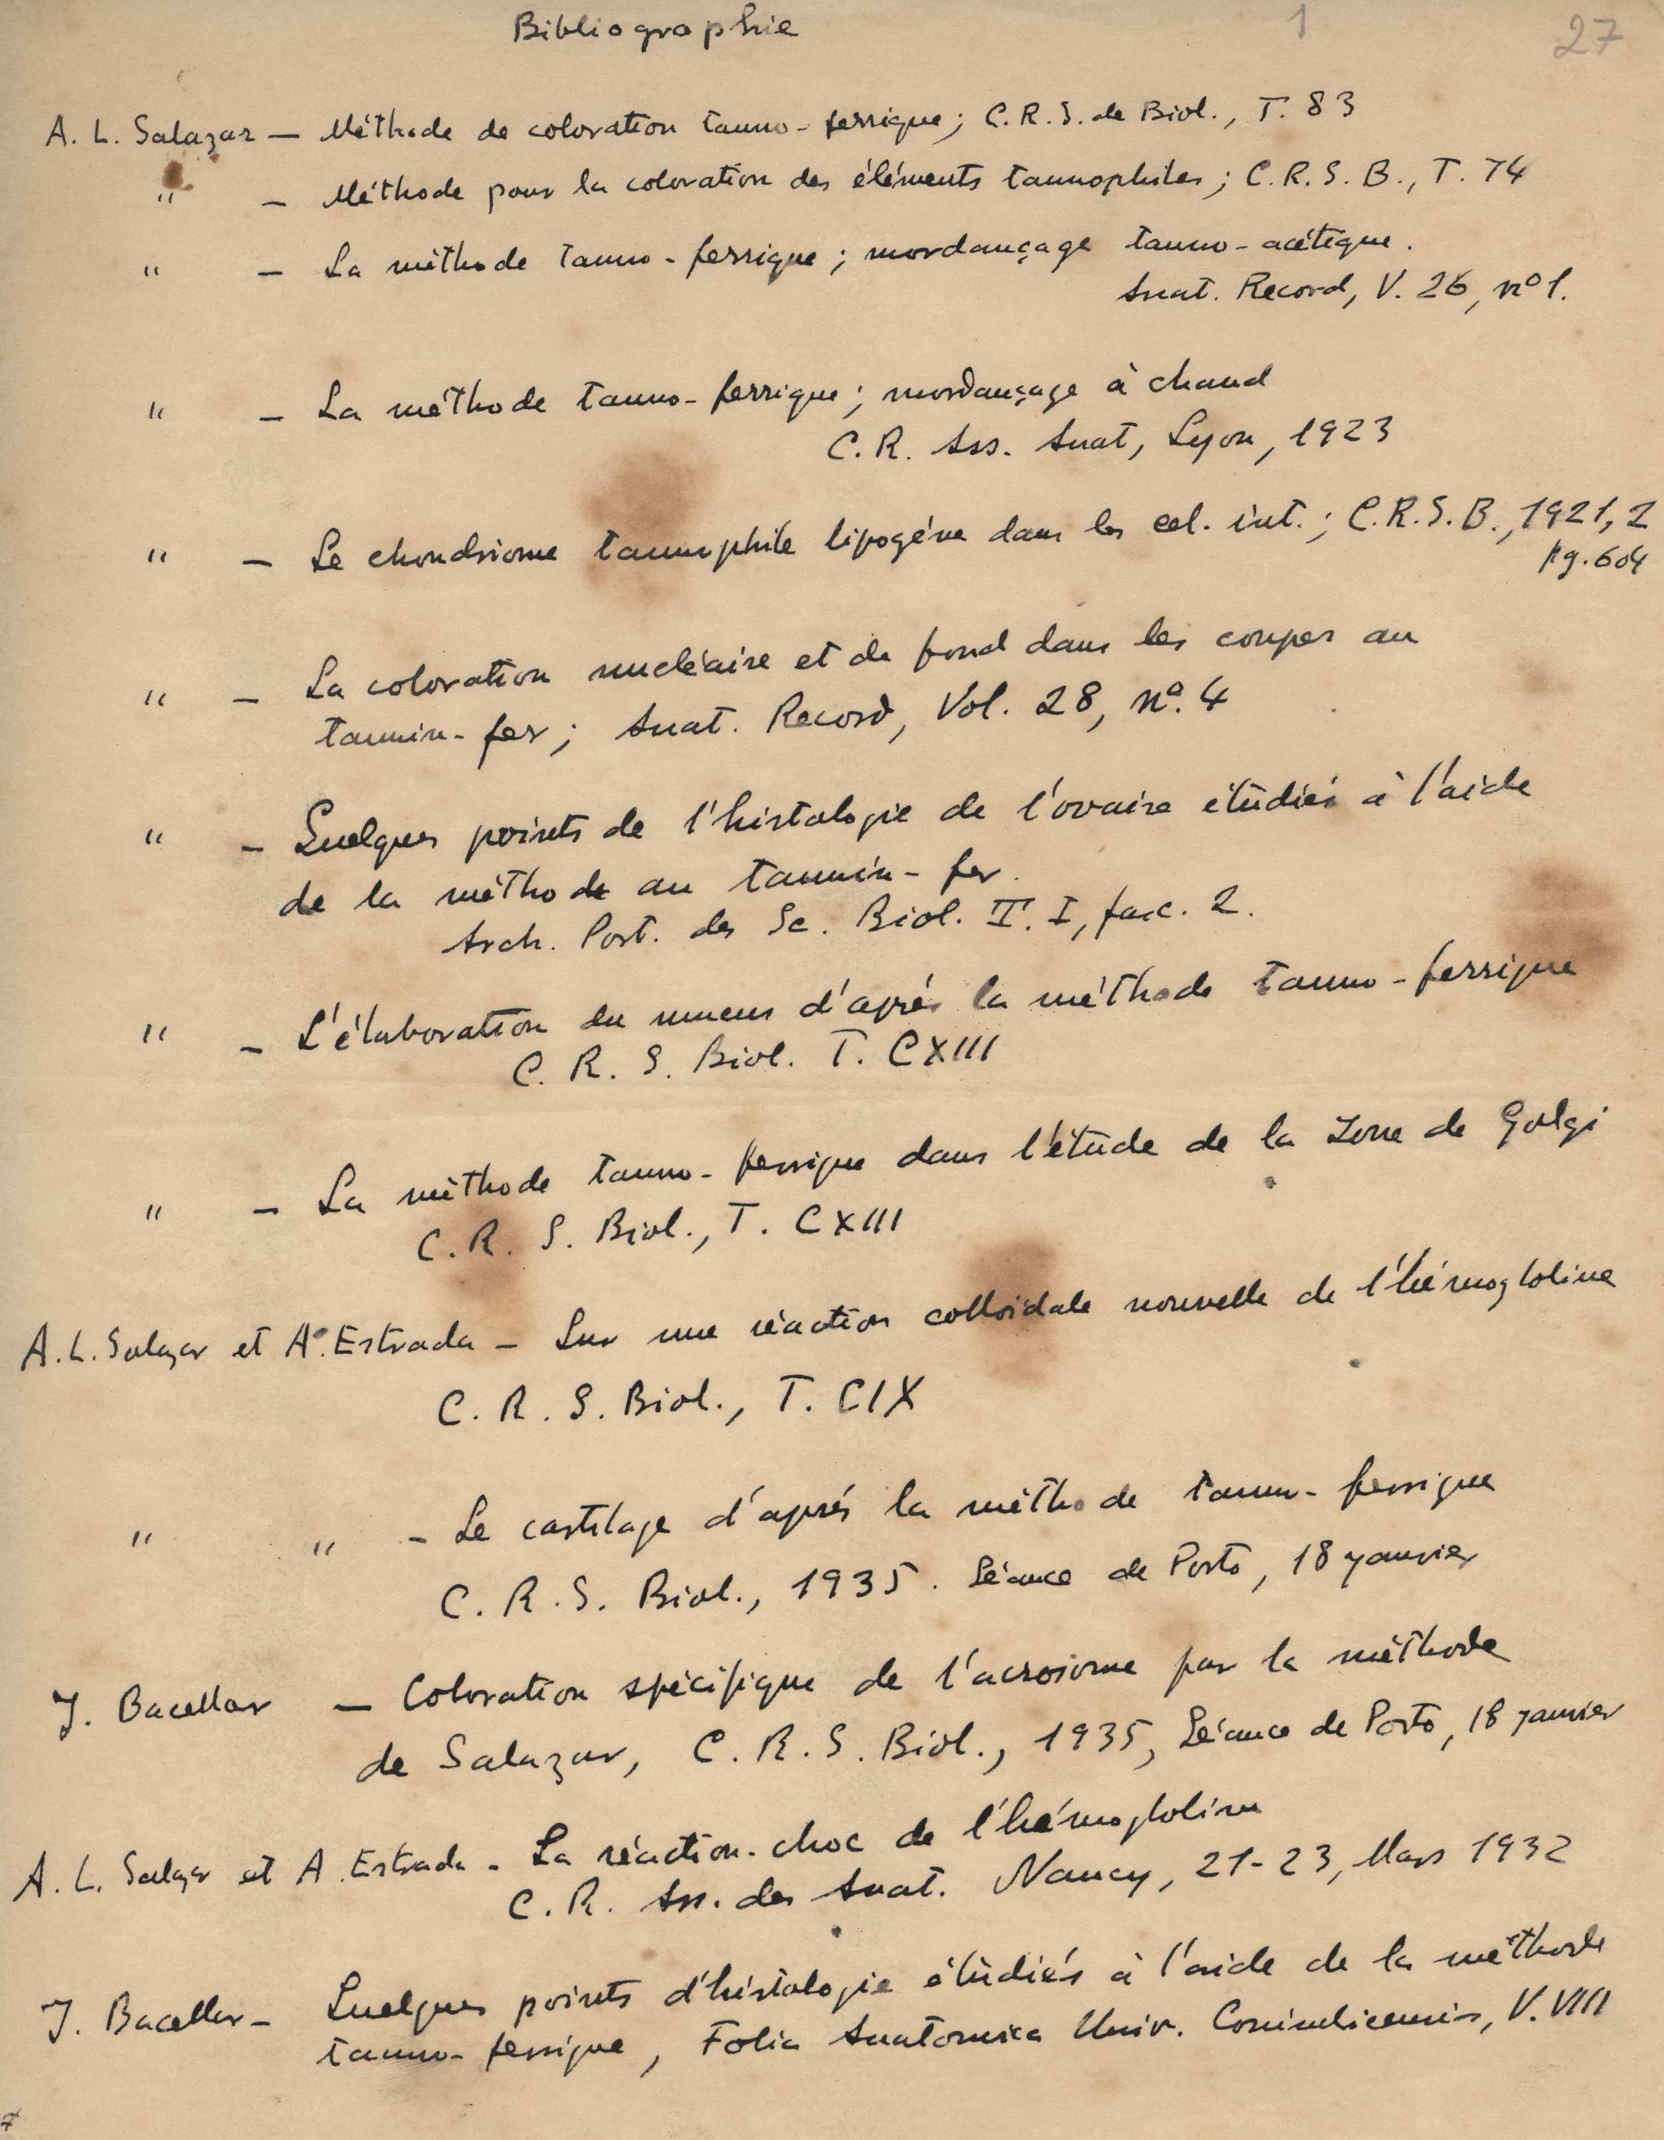 Bibliographie 1 27
A. L. Salazar — Méthode de coloration tanno-ferrique; C.R.S. de Biol., T. 83
" — Méthode pour la coloration des éléments tannophiles; C.R.S.B., T. 74
" — La méthode tanno-ferrique; mordançage tanno-acétique.
Anat. Record, V. 26, nº 1.
" — La méthode tanno-ferrique; mordançage à chaud
C.R. Ass. Anat, Lyon, 1923
" — Le chondriome tannophile lipogéne dans les cel. int.; C.R.S.B., 1921, 2
pg. 604
" — La coloration nucléaire et de fond dans les coupes au
tannin-fer; Anat. Record, Vol. 28, nº. 4
" — Quelques points de l'histologie de l'ovaire étudiés à l'aide
de la méthode au tannin-fer.
Arch. Port. des Sc. Biol. T. I, fasc. 2.
" — L'élaboration du mucus d'aprés la méthode tanno-ferrique
C. R. S. Biol. T. CXIII
" — La méthode tanno-ferrique dans l'étude de la zone de Golgi
C.R. S. Biol., T. CXIII
A.L. Salazar et A. Estrada — Sur une réaction colloïdale nouvelle de l'hémogloline
C. R. S. Biol., T. CIX
" " — Le cartilage d'aprés la méthode tanno-ferrique
C. R. S. Biol., 1935. Séance de Porto, 18 janvier
J. Bacellar — Coloration spécifique de l'acrosome par la méthode
de Salazar, C. R. S. Biol., 1935, Séance de Porto, 18 janvier
A. L. Salazar et A. Estrada - La réaction-choc de l'hémogloline
C. R. Ass. des Anat. Nancy, 21-23, Mars 1932
J. Bacellar — Quelques points d'histologie étudiés à l'aide de la méthode
tanno-ferrique, Folia Anatomica Univ. Conimbricensis, V. VIII